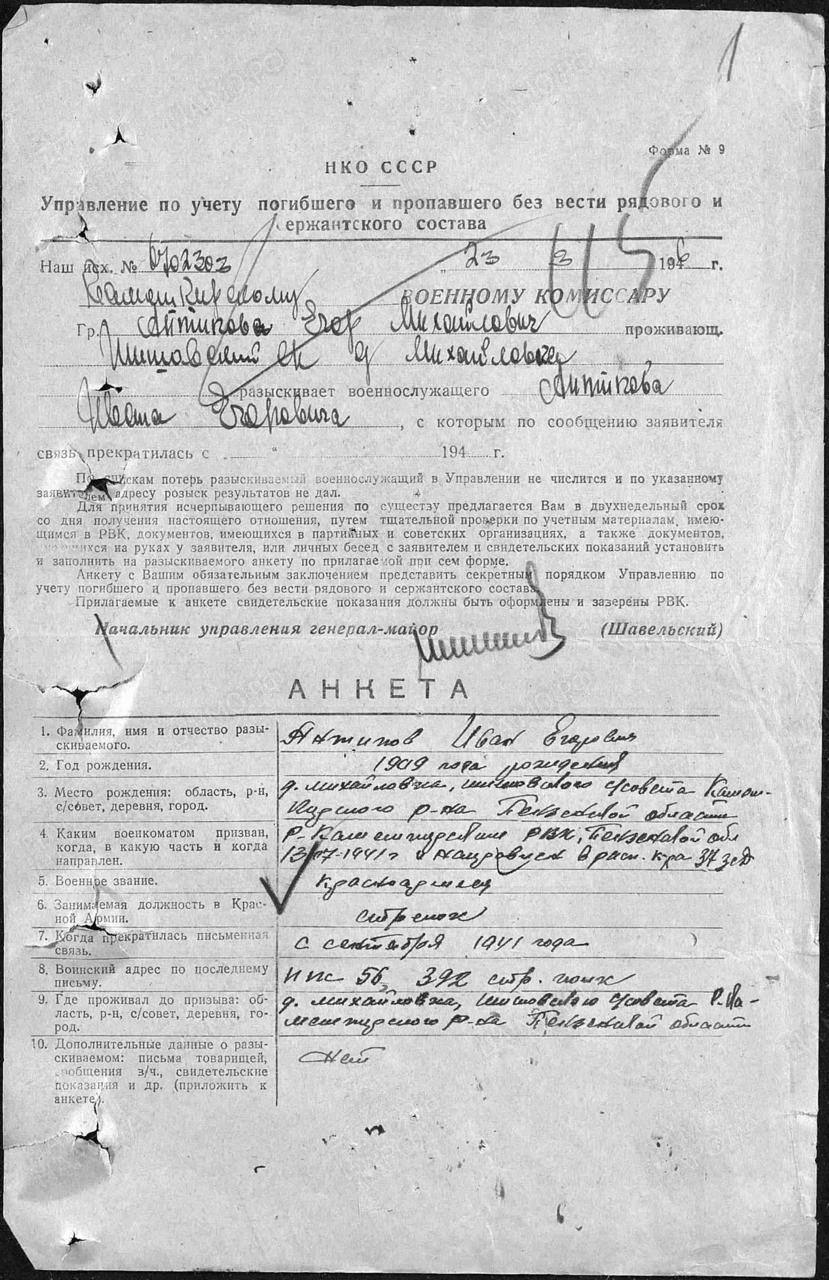 1
Форма № 9
НКО СССР
Управление по учету погибшего и пропавшего без вести рядового и
сержантского состава
Наш исх. № 6702303 „23 3 1946 г.
Камешкирскому ВОЕННОМУ КОМИССАРУ
115
Гр. Антипова Егор Михайлович проживающ.
ск д Михайловка
разыскивает военнослужащего Антипова
Ивана Егоровича, с которым по сообщению заявителя
связь прекратилась с „ “ 194 г.
По спискам потерь разыскиваемый военнослужащий в Управлении не числится и по указанному
заявителем адресу розыск результатов не дал.
Для принятия исчерпывающего решения по существу предлагается Вам в двухнедельный срок
со дня получения настоящего отношения, путем тщательной проверки по учетным материалам, имею-
щимся в РВК, документов, имеющихся в партийных и советских организациях, а также документов,
имеющихся на руках у заявителя, или личных бесед с заявителем и свидетельских показаний установить
и заполнить на разыскиваемого анкету по прилагаемой при сем форме.
Анкету с Вашим обязательным заключением представить секретным порядком Управлению по
учету погибшего и пропавшего без вести рядового и сержантского состава.
Прилагаемые к анкете свидетельские показания должны быть оформлены и заверены РВК.
Начальник управления генерал-майор (Шавельский)
АНКЕТА
1. Фамилия, имя и отчество разы-
скиваемого.
Антипов Иван Егорович
2. Год рождения.
1909 года рождения
3. Место рождения: область, р-н,
с/совет, деревня, город.
д. михайловка, с/совета Камеш-
кирского р-на Пензенской области
4. Каким военкоматом призван,
когда, в какую часть и когда
направлен.
Р-Камешкирским РВК, Пензенской обл
13/07-1941 г и направлен в расп. к-ра 37 зсд
5. Военное звание.
Красноармеец
6. Занимаемая должность в Крас-
ной Армии.
стрелок
7. Когда прекратилась письменная
связь.
с сентября 1941 года
8. Воинский адрес по последнему
письму.
ППС 56, 392 стр. полк
9. Где проживал до призыва: об-
ласть, р-н, с/совет, деревня, го-
род.
д. михайловка, с/совета Р. Ка-
мешкирского р-на Пензенской области
10. Дополнительные данные о разы-
скиваемом: письма товарищей,
сообщения в/ч., свидетельские
показания и др. (приложить к
анкете).
Нет